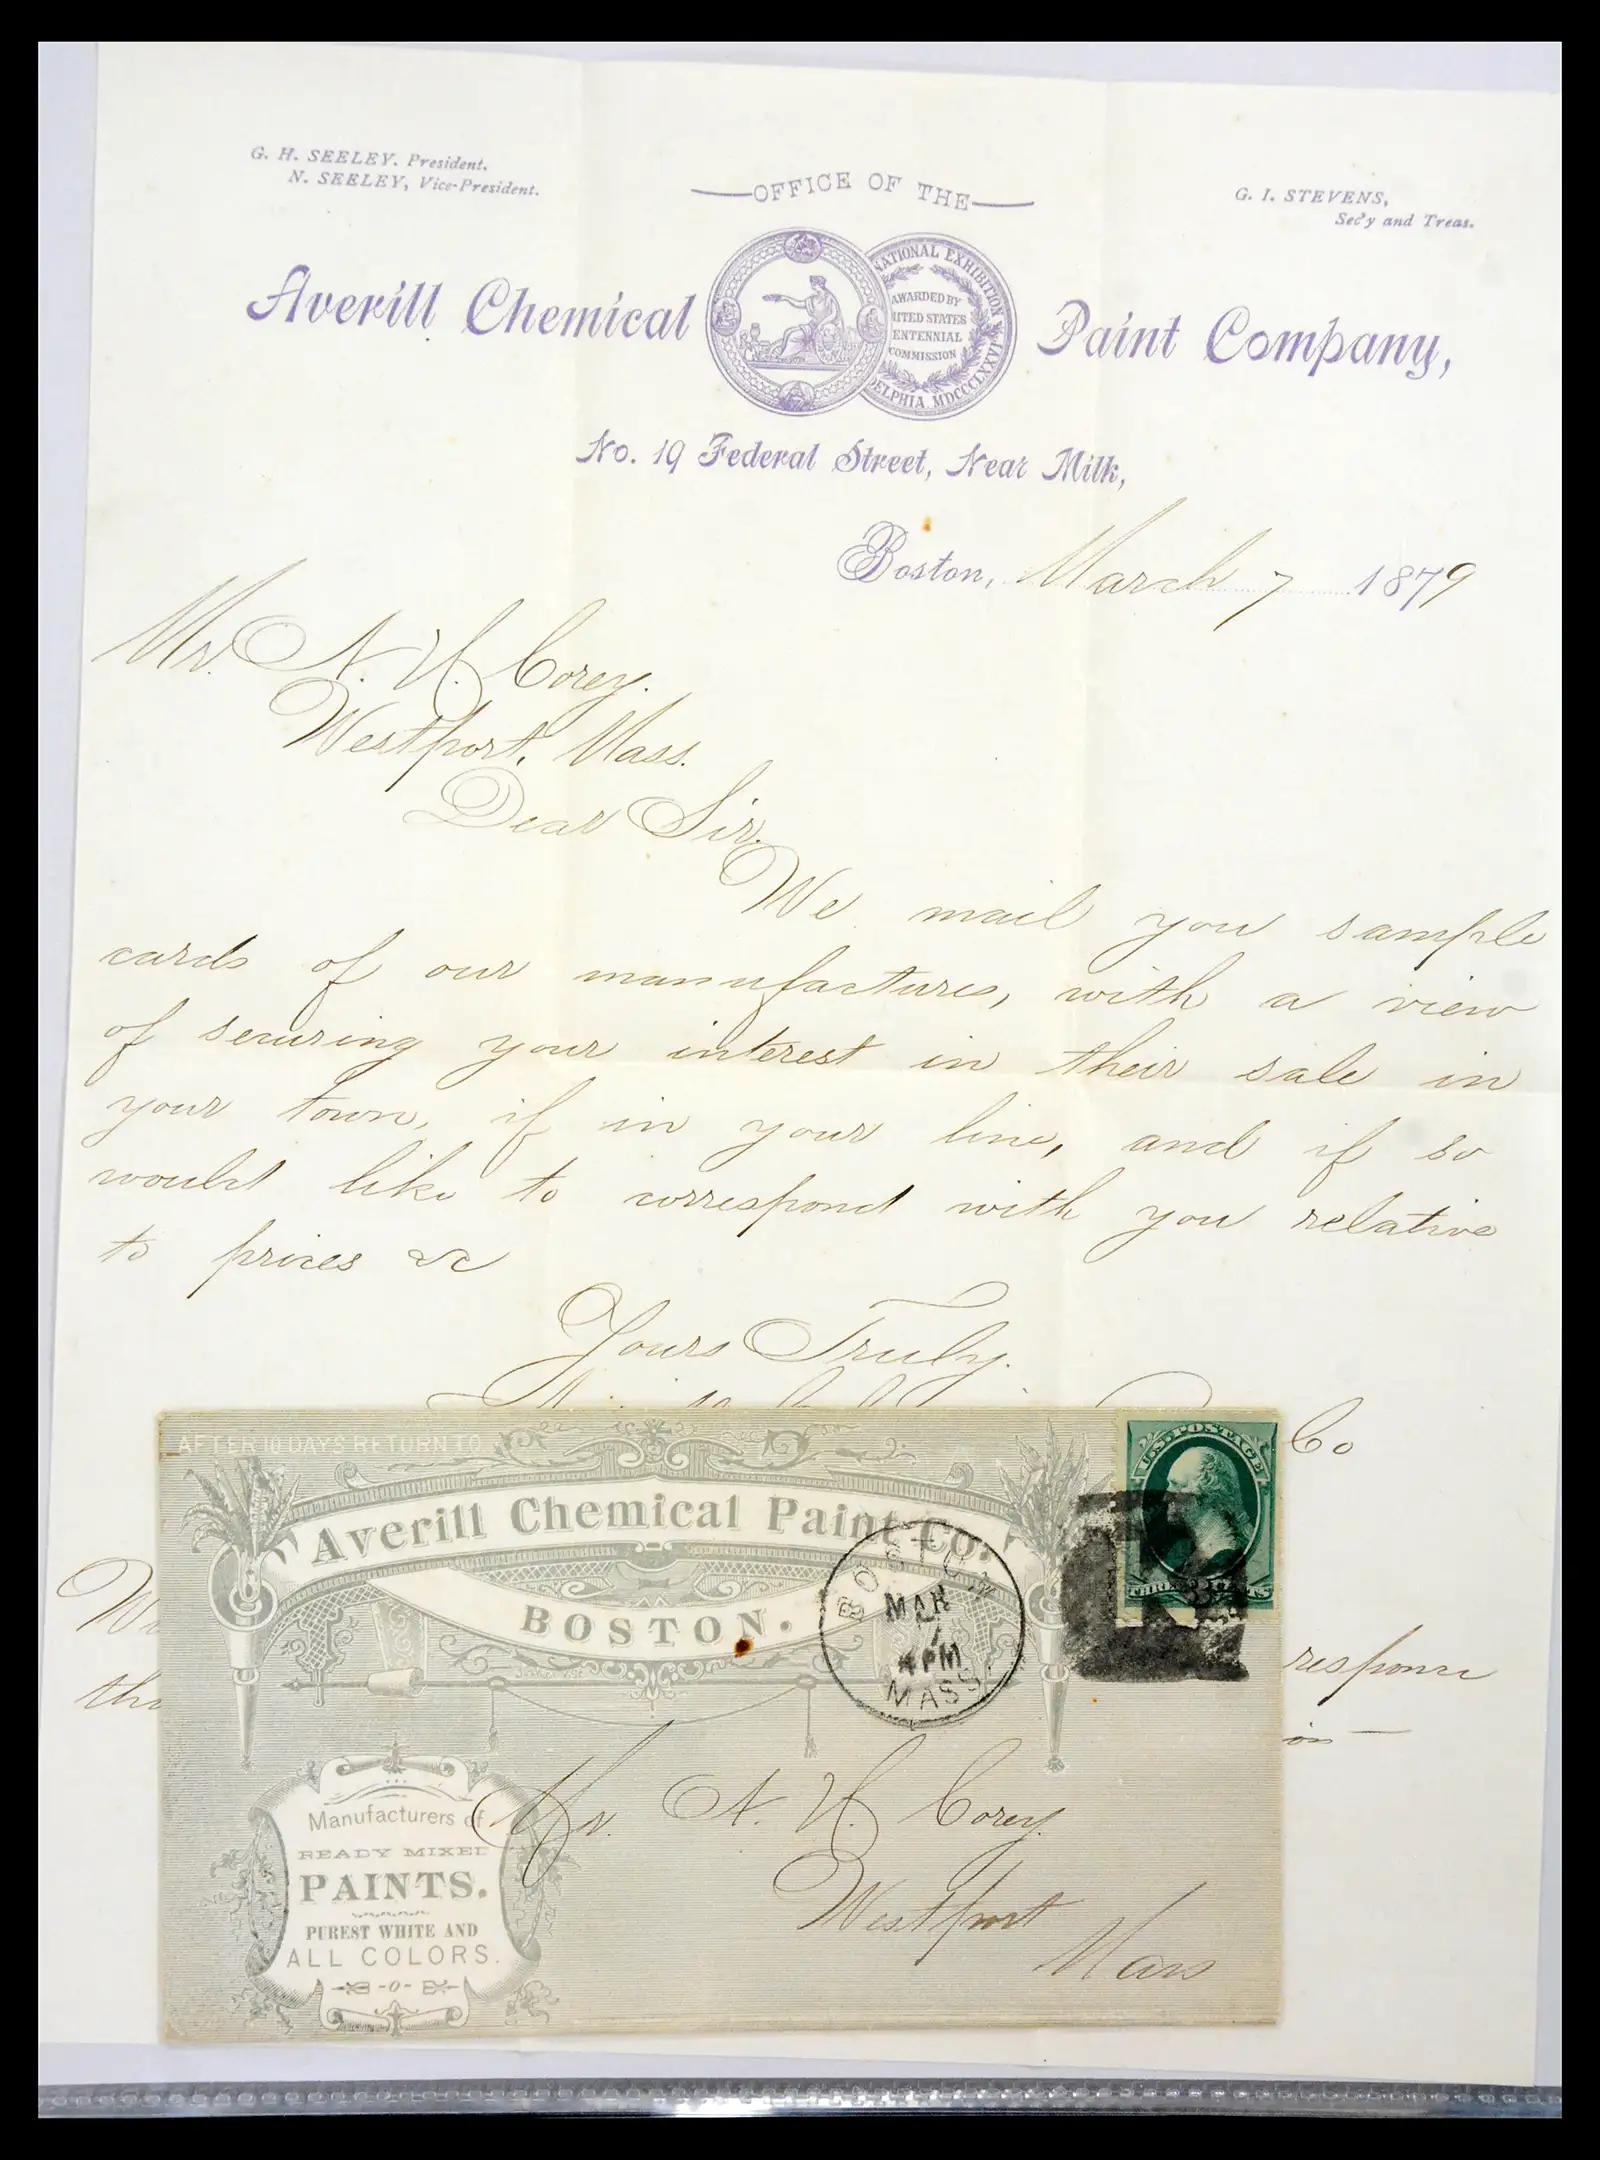 G. H. SEELEY. President.
N. SEELEY, Vice-President.
G. I. STEVENS,
Sec'y and Treas.
OFFICE OF THE
Averill Chemical Paint Company,
NATIONAL EXHIBITION
MDCCCLXXVI
AWARDED BY
ITED STATES
ENTENNIAL
COMMISSION
DELPHIA, MDCCCLXXVI
No. 19 Federal Street, Near Milk,
Boston, March 7 1879
Mr. A. H. Corey.
Westport, Mass.
Dear Sir.
We mail you sample
cards of our manufactures, with a view
of securing your interest in their sale in
your town, if in your line, and if so
would like to correspond with you relative
to prices &c
Yours Truly.
Co
response
AFTER 10 DAYS RETURN TO
Averill Chemical Paint Co.
BOSTON.
Manufacturers of
READY MIXED
PAINTS.
PUREST WHITE AND
ALL COLORS.
-0-
BOSTON
MAR
7
4PM
MASS.
U.S. POSTAGE
THREE CENTS
Mr. A. H. Corey.
Westport
Mass